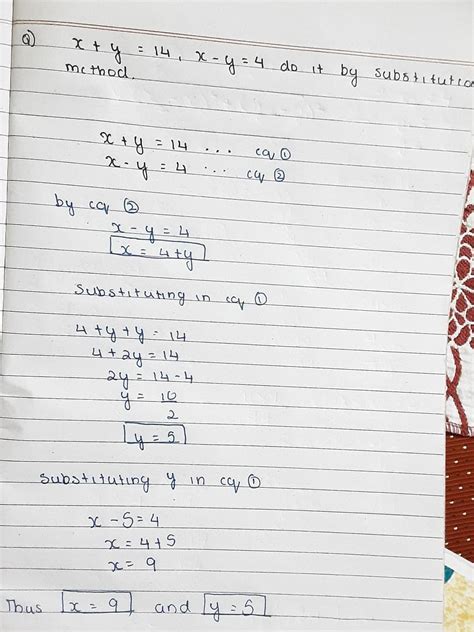 Q) x + y = 14, x - y = 4 do it by substitution
method.
x + y = 14 ... eq ①
x - y = 4 ... eq ②
by eq ②
x - y = 4
x = 4+y
Substituting in eq ①
4 + y + y = 14
4 + 2y = 14
2y = 14 - 4
y = 10
2
y = 5
Substituting y in eq ①
x - 5 = 4
x = 4 + 5
x = 9
Thus x = 9, and y = 5